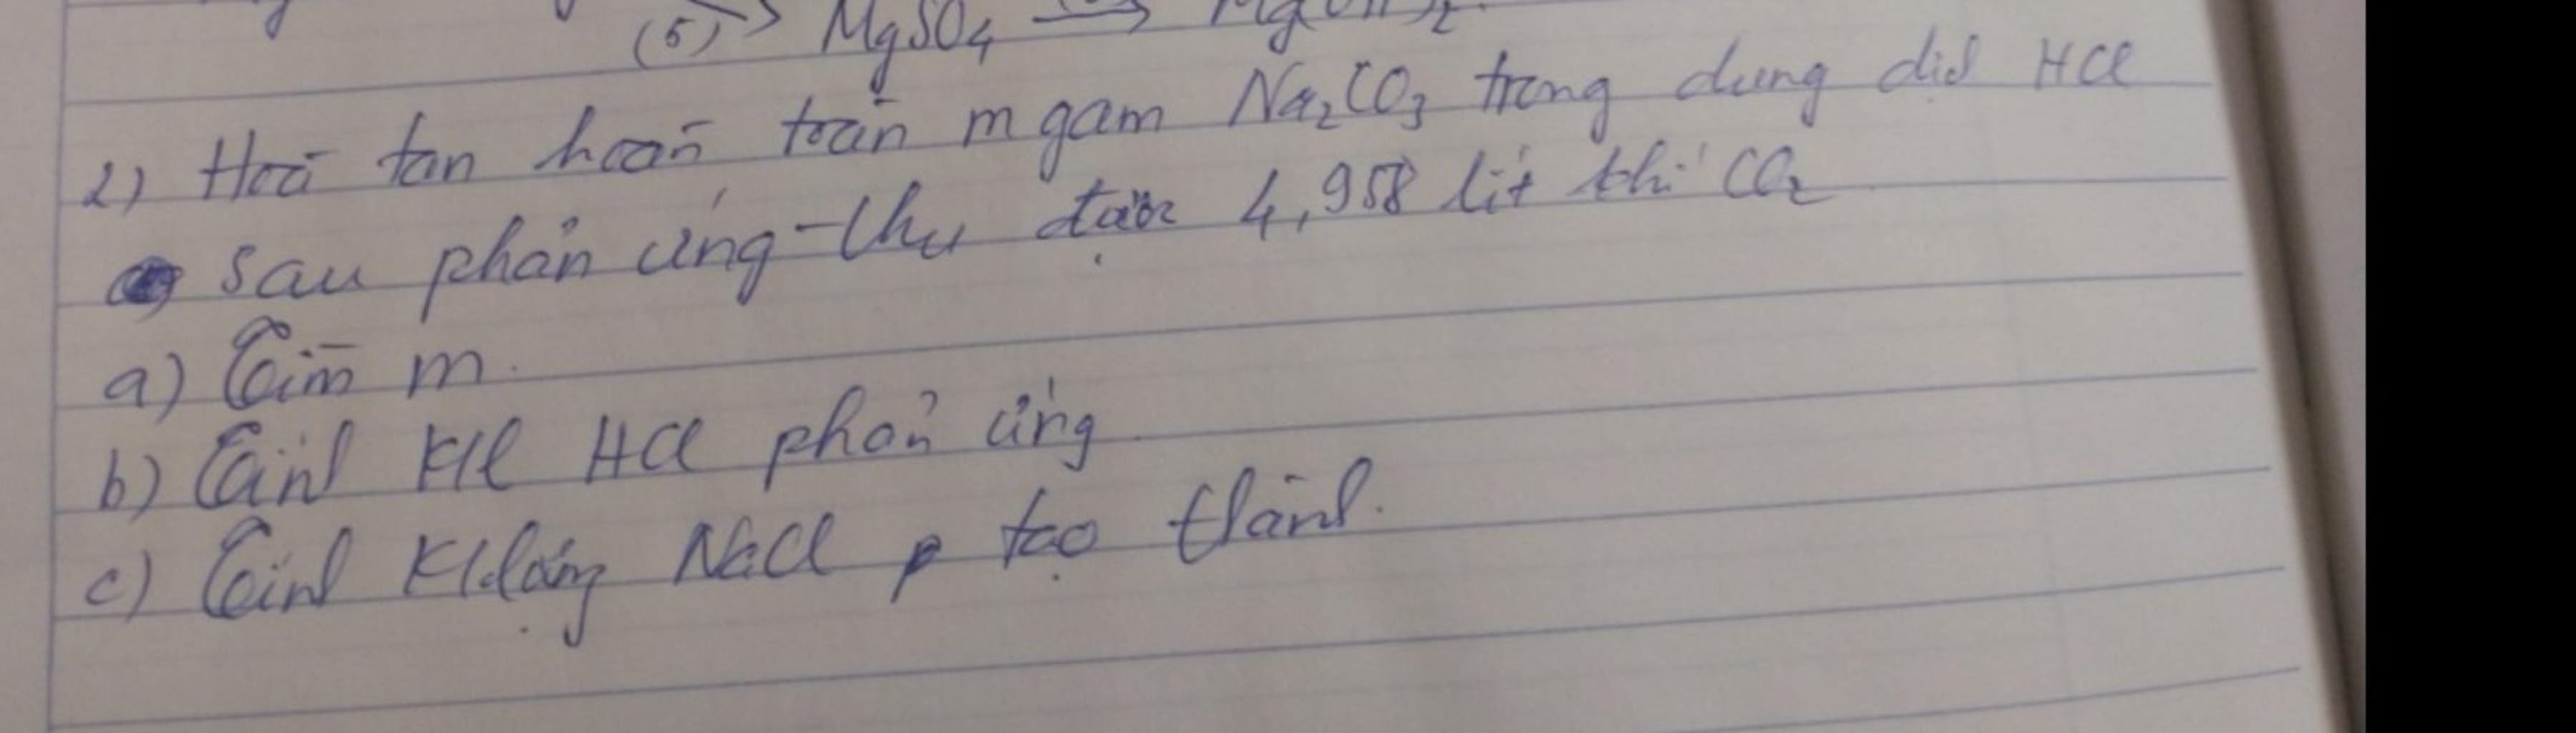 (5)> MgSO4 → Mg(OH)2.
2) Hoà tan hoàn toàn m gam Na2CO3 trong dung dịch HCl
sau phản ứng thu được 4,958 lít khí CO2
a) Tìm m.
b) Tính Kl HCl phản ứng
c) Tính Khối lượng NaCl tạo thành.